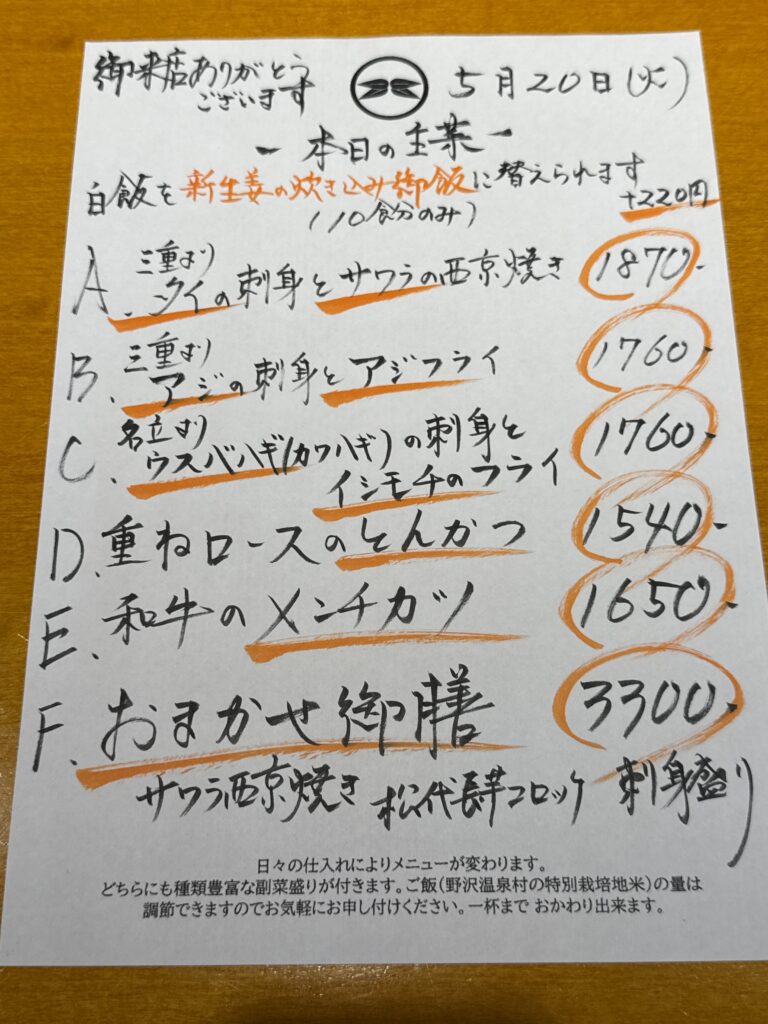 御来店ありがとう
ございます
5月20日(火)
- 本日の主菜 -
白飯を新生姜の炊き込み御飯に替えられます
+220円
(10食分のみ)
A. 三重より
タイの刺身とサワラの西京焼き 1870-
B. 三重より
アジの刺身とアジフライ 1760-
C. 名立より
ウスバハギ(カワハギ)の刺身と
イシモチのフライ 1760-
D. 重ねロースのとんかつ 1540-
E. 和牛のメンチカツ 1650-
F. おまかせ御膳 3300-
サワラ西京焼き 松代長芋コロッケ 刺身盛り
日々の仕入れによりメニューが変わります。
どちらにも種類豊富な副菜盛りが付きます。ご飯(野沢温泉村の特別栽培地米)の量は
調節できますのでお気軽にお申し付けください。一杯まで おかわり出来ます。